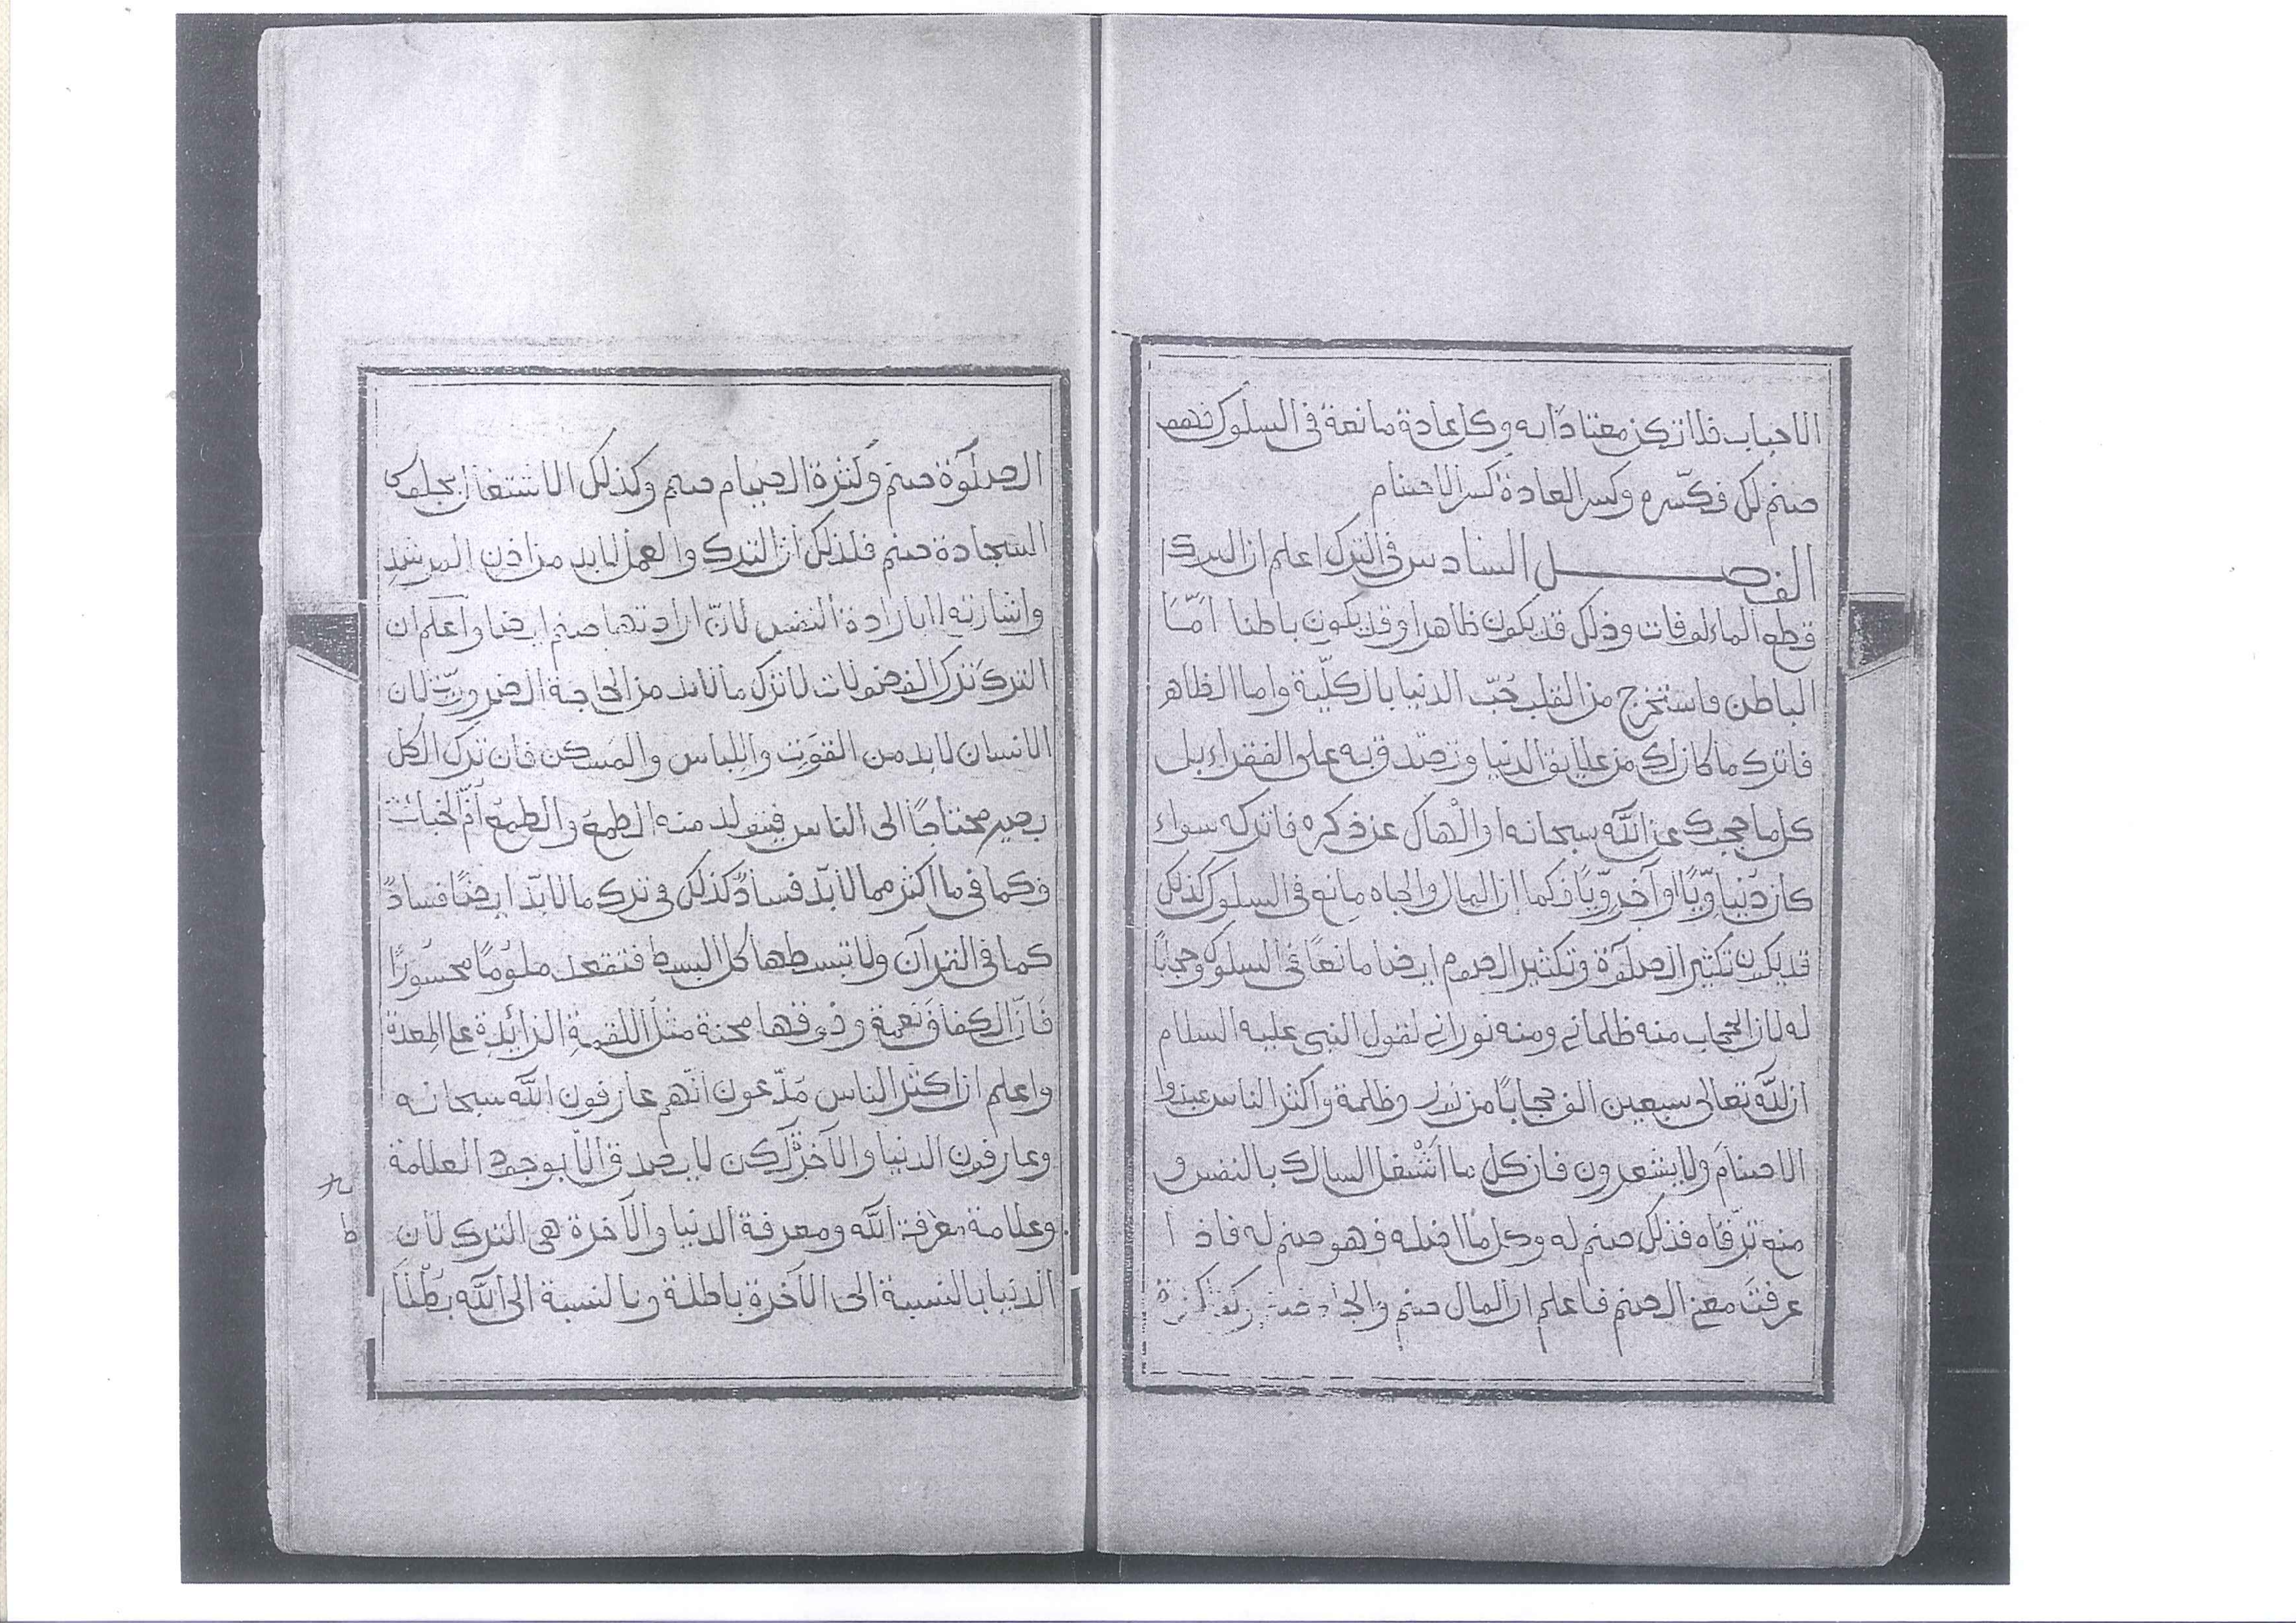 الاحباب فلا تكن معتادا به وكل عادة مانعة في السلوك فهو
صنم لك فكسّره وكسر العادة كسر الاصنام
الفصل السادس في الترك اعلم ان الترك
قطع الماءلوفات وذلك قد يكون ظاهرا وقد يكون باطنا امّا
الباطن فاستخرج من القلب حُبّ الدنيا بالكلّية واما الظاهر
فاترك ما كان لك من علايق الدنيا وتصدّق به على الفقراء بل
كل ما حجبك عن اللّه سبحانه او الْهاك عن ذكره فاتركه سواء
كان دنياويّا او آخرويّا فكما ان المال والجاه مانع في السلوك كذلك
قد يكون تكثير الصلوة وتكثير الصوم ايضا مانعًا في السلوك وحجابًا
له لان الحجاب منه ظلماني ومنه نوراني لقول النبي عليه السلام
ان للّه تعالى سبعين الف حجابًا من نور وظلمة واكثر الناس عبدوا
الاصنامَ ولا يشعرون فان كل ما اَشْغل السالك بالنفس و
منع ترقّاه فذلك صنم له وكل ما اضله فهو صنم له فاذا
عرفتَ معنى الصنم فاعلم ان المال صنم والجاه صنم وكثرة
الصلوة صنم وكَثرة الصيام صنم وكذلك الاشتغال بجلوس
السجادة صنم فلذلك ان الترك والعمل لا بد من اذن المرشدِ
واشارته لا بارادة النفس لانّ ارادتها صنم ايضا واعلم ان
الترك ترك الفضولات لا ترك ما لا بد من الحاجة الضروريّة لان
الانسان لا بد من القوت واللباس والمسكن فان ترك الكل
يصير محتاجًا الى الناس فيتولد منه الطمع والطمع اُمّ الخبائث
وكما في ما اكثر مما لا بدّ فسادٌ كذلك في ترك ما لا بدّ ايضًا فسادٌ
كما في القرآن ولا تبسطها كل البسط فتقعد ملومًا محسورًا
فَاِنّ الكفاف نعمة وفوقها محنة مثل اللقمةِ الزائدةِ على المعدة
واعلم ان اكثر الناس مَدّعون انّهم عارفون اللّه سبحانه
وعارفون الدنيا والآخرة لكن لا يصدق الّا بوجود العلامة
وعلامة معرفة اللّه ومعرفة الدنيا والآخرة هي الترك لان
الدنيا بالنسبة الى الآخرة باطلة وبالنسبة الى اللّه